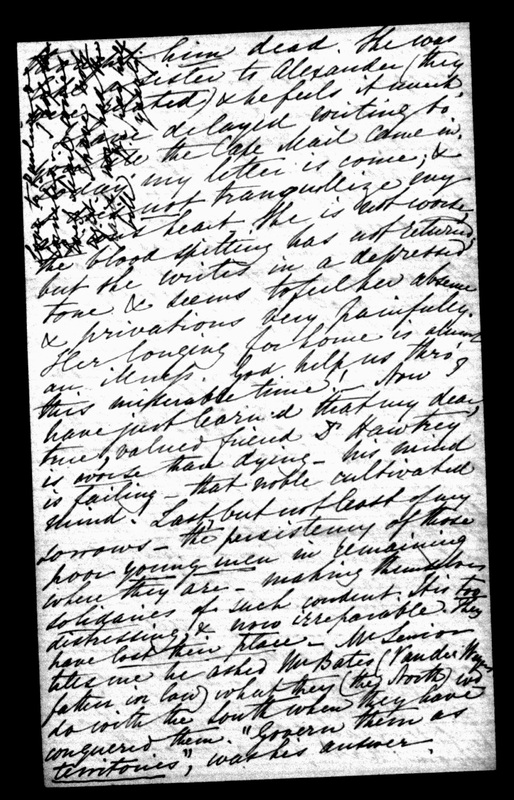 him dead. She was
sister to Alexander (they
) & he feels it much.
delayed writing to
the Cape Mail came in.
my letter is come; &
not tranquillize my
heart. She is not worse,
the blood spitting has not returned,
but she writes in a depressed
tone & seems to feel her absence
& privations very painfully.
Her longing for home is almost
an illness. God help us thro'
this miserable time! Now I
have just learn'd that my dear,
true, valued friend Dr Hawtrey
is worse than dying — his mind
is failing — that noble cultivated
mind! Last but not least of my
sorrows — the persistency of those
poor young men in remaining
where they are — making themselves
solidaires of such conduct. It is too
distressing, & now irreparable. They
have lost their place — Mr Senior
tells me he asked Mr Bates (Van de Weyer's
father in law) what they (the North) wd
do with the South when they have
conquered them. "Govern them as
territories", was his answer.